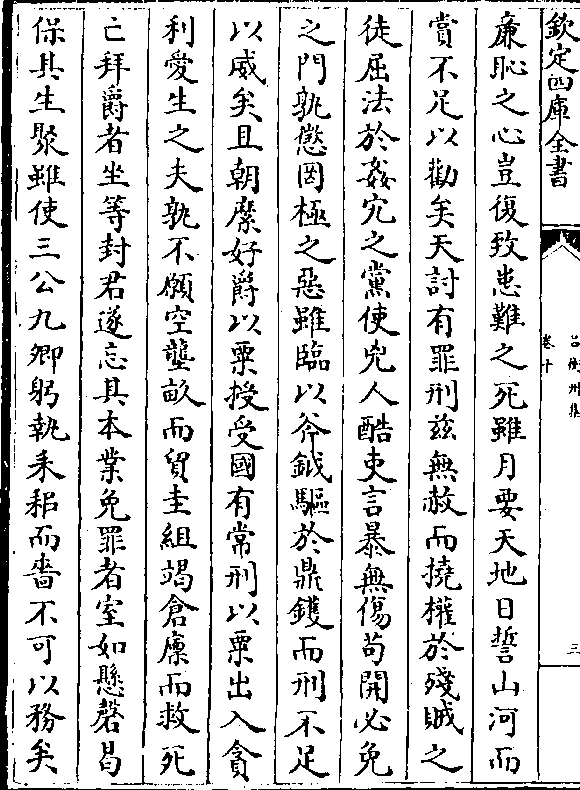 欽定四庫全書
呂衡州集
卷十
三
廉恥之心豈復致患難之死雖月要天地日誓山河而
賞不足以勸矣天討有罪刑兹無赦而撓權於殘賊之
徒屈法於姦宄之黨使兇人酷吏言暴無傷苟開必免
之門孰懲罔極之惡雖臨以斧鉞驅於鼎鑊而刑不足
以威矣且朝縻好爵以粟授受國有常刑以粟出入貪
利愛生之夫孰不願空壟畝而貿圭組竭倉廩而救死
亡拜爵者坐等封君遂忘其本業免罪者室如懸磬曷
保其生聚雖使三公九卿躬執耒耜而嗇不可以務矣